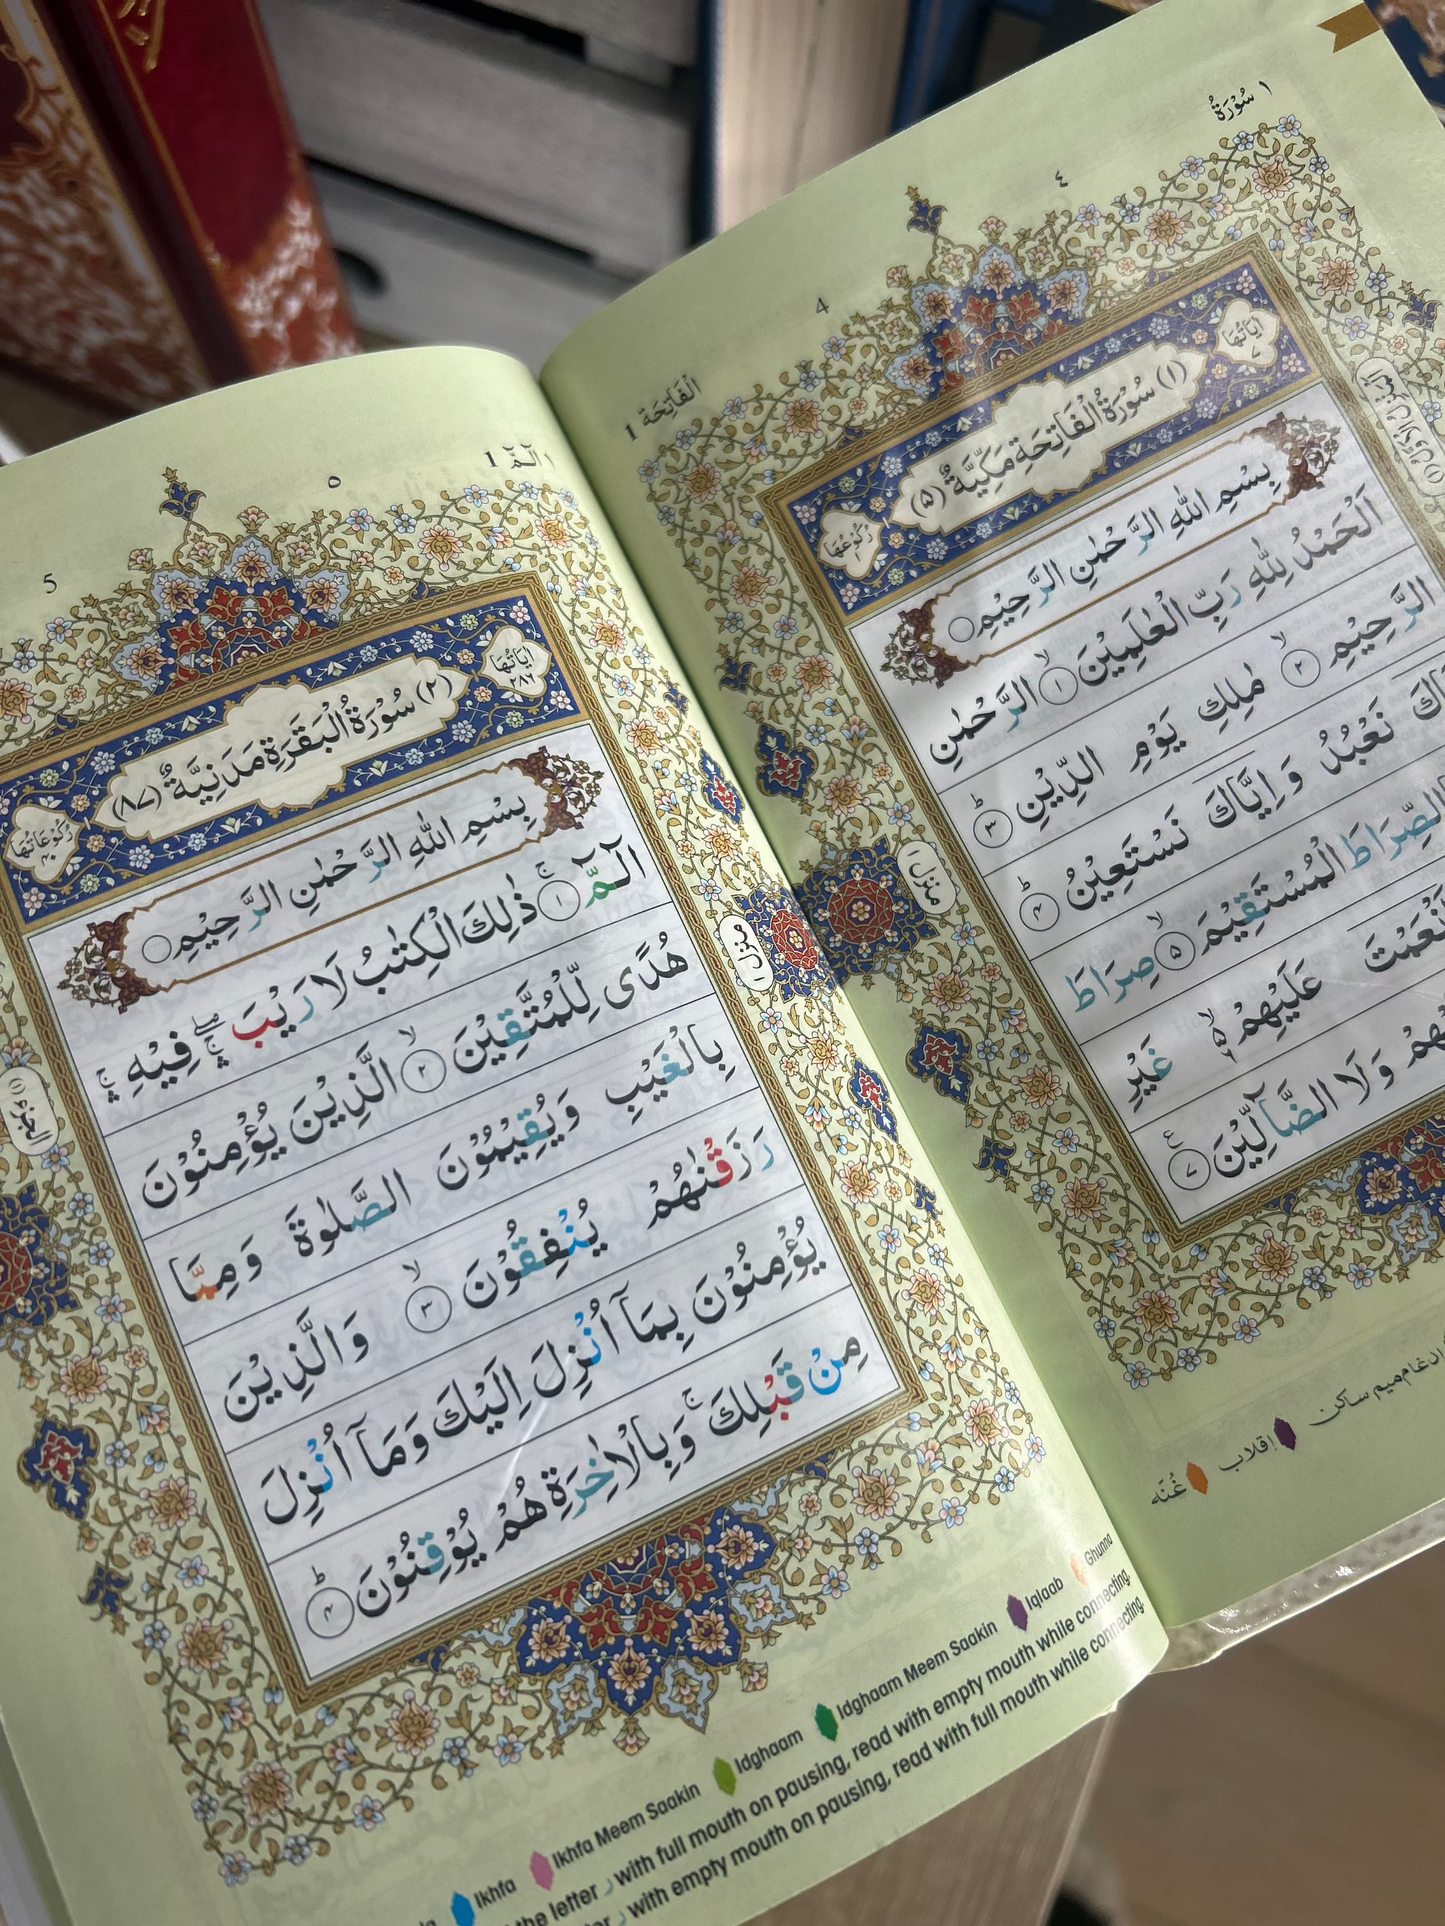 ١ سُوْرَةُ
٤
4
اَلْفَاتِحَة 1
اٰيَاتُهَا ٧
(١) سُوْرَةُ الْفَاتِحَةِ مَكِّيَّةٌ (٥)
رُكُوْعُهَا ١
بِسْمِ اللّٰهِ الرَّحْمٰنِ الرَّحِيْمِ
اَلْحَمْدُ لِلّٰهِ رَبِّ الْعٰلَمِيْنَ ١ الرَّحْمٰنِ
الرَّحِيْمِ ٢ مٰلِكِ يَوْمِ الدِّيْنِ ٣
نَعْبُدُ وَاِيَّاكَ نَسْتَعِيْنُ ٤
الصِّرَاطَ الْمُسْتَقِيْمَ ٥ صِرَاطَ
اَنْعَمْتَ عَلَيْهِمْ ۙ۬ غَيْرِ
وَلَا الضَّآلِّيْنَ ٧
منزل ١
ادغام میم ساکن
اِقلاب
غُنّه
١ الٓمّٓ 1
٥
5
اٰيَاتُهَا ٢٨٦
(٢) سُوْرَةُ الْبَقَرَةِ مَدَنِيَّةٌ (٨٧)
رُكُوْعَاتُهَا ٤٠
بِسْمِ اللّٰهِ الرَّحْمٰنِ الرَّحِيْمِ
الٓمّٓ ١ۚ ذٰلِكَ الْكِتٰبُ لَا رَيْبَ ۛۖ فِيْهِ ۛۚ
هُدًى لِّلْمُتَّقِيْنَ ٢ۙ الَّذِيْنَ يُؤْمِنُوْنَ
بِالْغَيْبِ وَيُقِيْمُوْنَ الصَّلٰوةَ وَمِمَّا
رَزَقْنٰهُمْ يُنْفِقُوْنَ ٣ۙ وَالَّذِيْنَ
يُؤْمِنُوْنَ بِمَآ اُنْزِلَ اِلَيْكَ وَمَآ اُنْزِلَ
مِنْ قَبْلِكَ ۚ وَبِالْاٰخِرَةِ هُمْ يُوْقِنُوْنَ ٤ؕ
منزل ١
الجزء (١)
Ikhfa Ikhfa Meem Saakin Idghaam Idghaam Meem Saakin Iqlaab Ghunna
the letter ر with full mouth on pausing, read with empty mouth while connecting.
ر with empty mouth on pausing, read with full mouth while connecting.